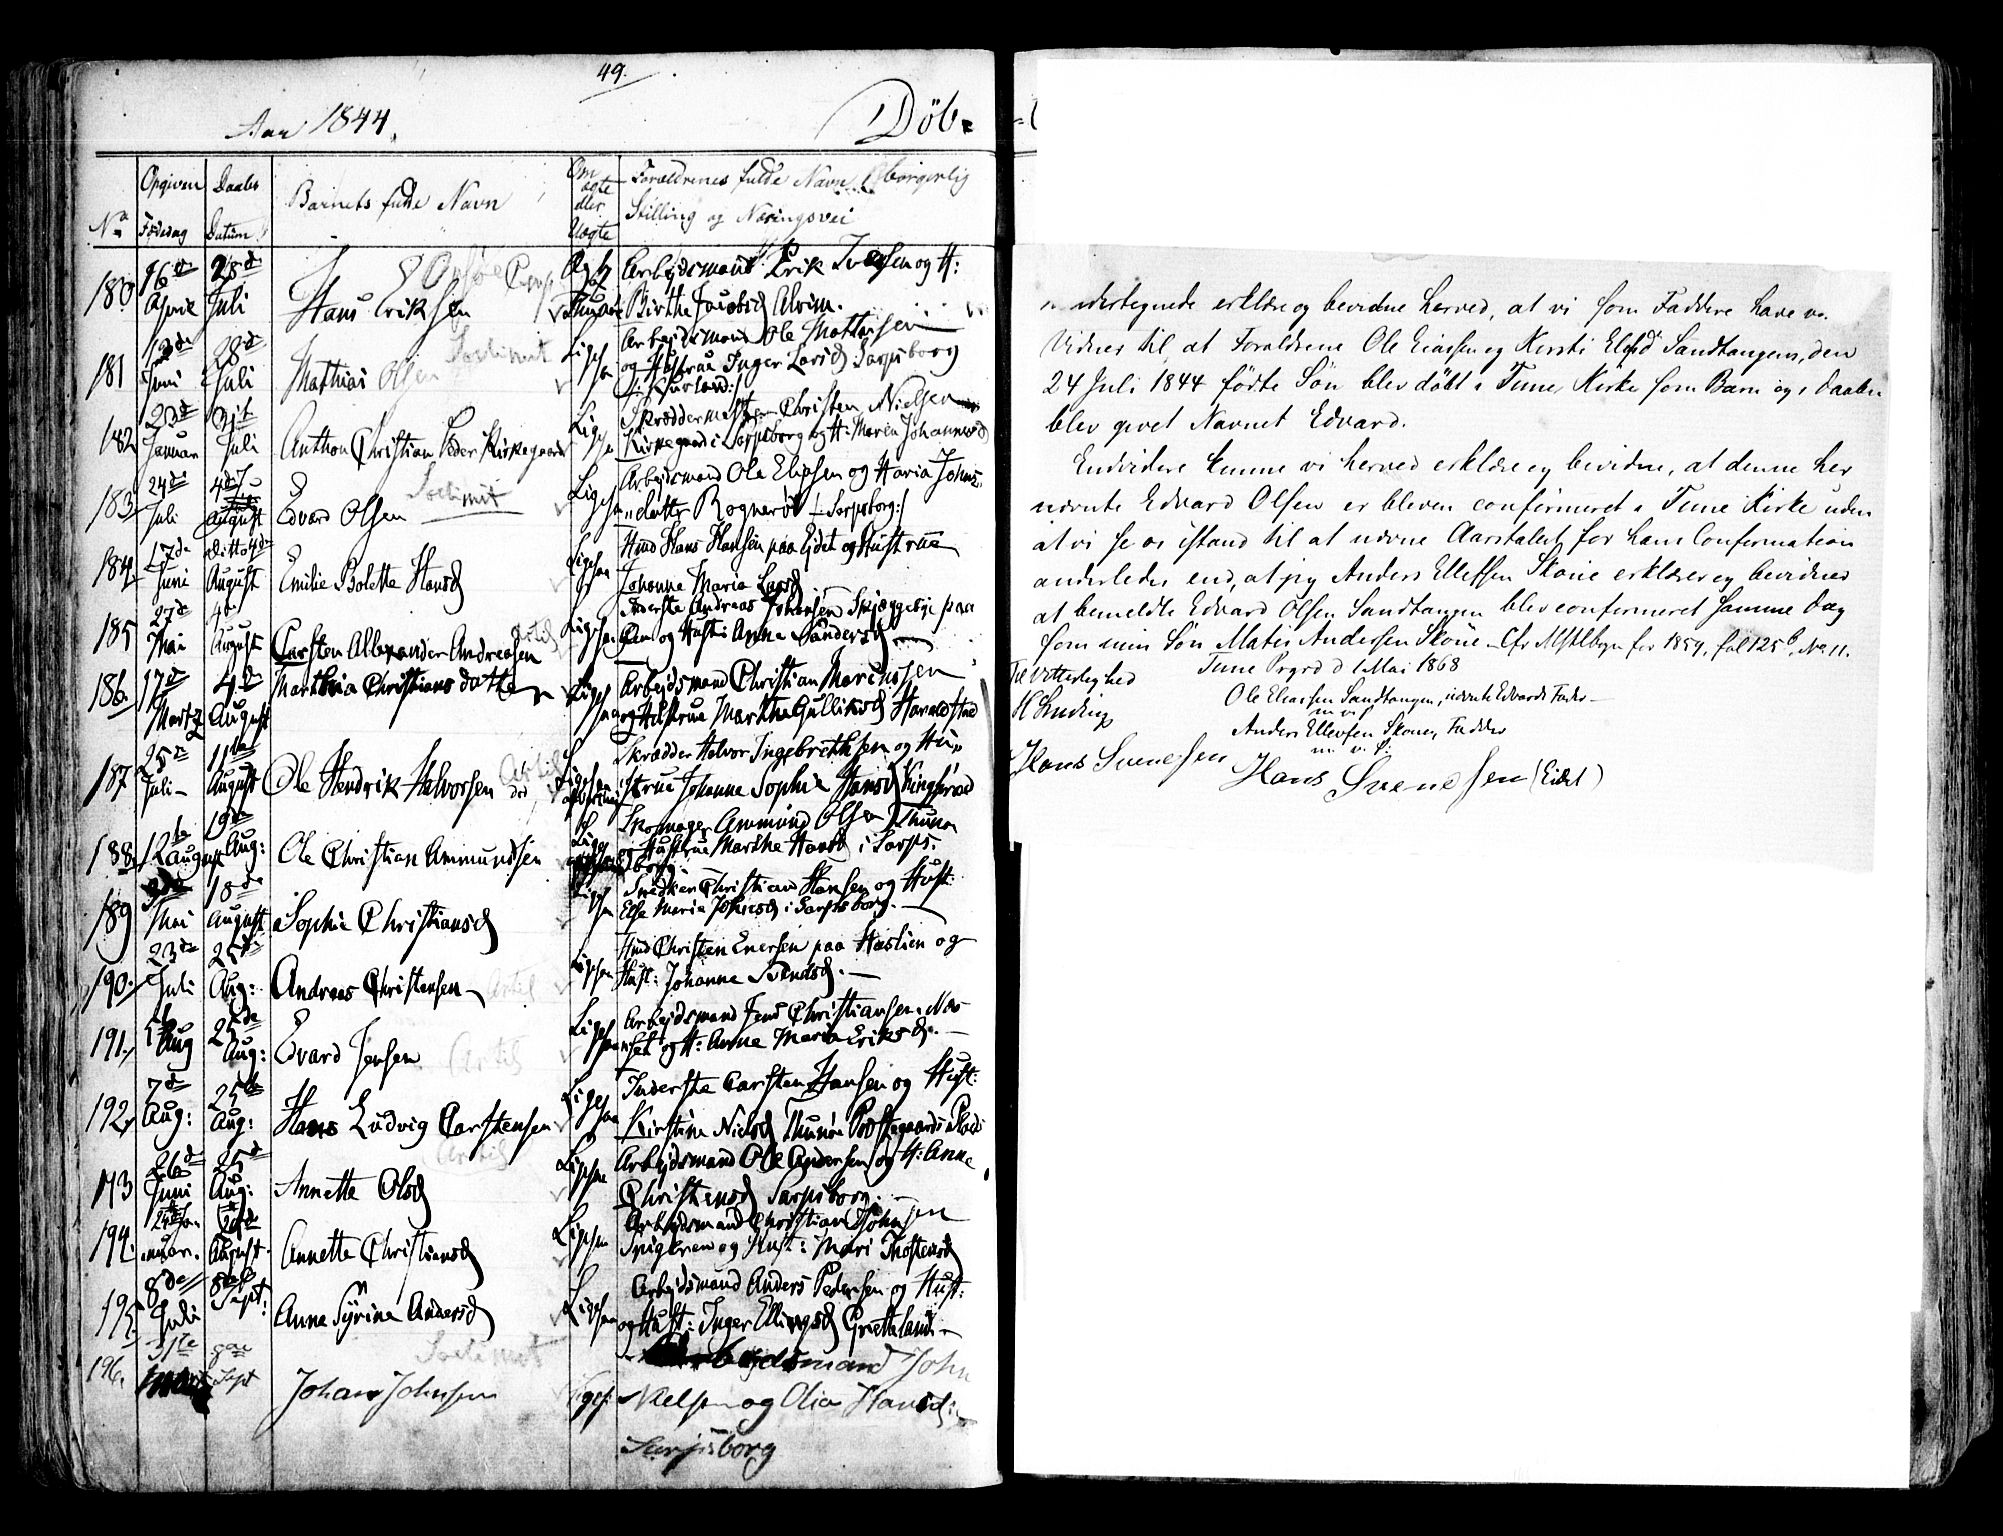 49.
Aar 1844.
Døb-
No
Opgiven Fødedag
Daabs Datum
Barnets fulde Navn
Om ægte eller Uægte
Forældrenes fulde Navn, borgerlig
Stilling og Næringsvei
180 16de April 28de Juli Hans Eriksen Arbejdsmand Erik Iversen og H:
Birthe Jacobsd Alvim.
181 Juni 28de Juli Mathias Olsen Ligesaa Arbejdsmand Ole Mathesen
og Hustrue Inger Larsd Sarpsborg
/: Kurland:/
182 23de Januar 31te Juli Anthon Christian Peder Kirkegaard Ligesaa Skræddermester Christen Nielsen
Kirkegaard i Sarpsborg og H: Maren Johannesd
183 24de Juli 4de August Edvard Olsen Ligesaa Arbejdsmand Ole Eliesen og Maria Johns
datter Rognerød /: Sarpsborg:/
184 17de Juni Ditto 4de August Emilie Bolette Hansd Ligesaa Hmd Hans Hansen paa Ejdet og Hustrue
Johanne Maria Larsd
185 27de Mai 4de August Carsten Allexander Andreasen Ligesaa Inderste Andreas Johansen Skjæggebye paa
og Hust: Anne Sandersd
186 17de Martz 4de August Marthea Christiansdatter Ligesaa Arbejdsmand Christian Marcussen
og Hustrue Marthe Gulliksd Haraldstad
187 25de Juli 11te August Ole Hendrik Halvorsen Ligesaa Skrædder Halvor Ingebrethsen og Hu-
strue Johanne Sophie Hansd
188 12te August Aug: Ole Christian Ammundsen Skomager Ammund Olsen Thune
og Hustrue Marthe Hansd i Sarps-
borg
189 Mai 18de August Sophie Christiansd Ligesaa Snedker Christian Hansen og Hust:
Else Maria Johnsd i Sarpsborg.
190. 23de Juli 25de Aug: Andreas Christensen Artil Ligesaa Hmd Christen Enersen paa Haslien og
Hust: Johanne Svendsd.
191. Aug 25de Aug: Edvard Jensen Artil Ligesaa Arbejdsmand Jens Christiansen Næs-
set og H: Anne Maria Eriksd.
192. 7de Aug: 25de Aug: Hans Ludvig Carstensen Artil Ligesaa Inderste Carsten Hansen og Hust:
Kirstine Nielsd Thunøe Præstegaards Plads
193 26de Juni 25de Aug: Annette Olsd Ligesaa Arbejdsmand Ole Andersen og H: Anne
Christensd Sarpsborg.
194. 24de Januar. August Annette Christiansd Ligesaa Arbejdsmand Christian Johnsen
Spigkren og Hust: Mari Thostensd
195. 8de Juli 8de Sept: Anne Syrine Andersd Ligesaa Arbejdsmand Anders Pedersen og Hust:
og Hust: Inger Ellingsd Grettelund
196. 31te Sept Johan Johnsen Ligesaa Arbejdsmand John
Nielsen og Olia Hansd:
Sarpsborg
Undertegnede erklære og bevidne herved, at vi som Faddere have
Vidnes til, at Forældrene Ole Eliassen og Kersti Elefsd Sandtangens, den
24 Juli 1844 fødte Søn blev døbt i Tune Kirke som Barn og i Daaben
blev givet Navnet Edvard.
Endvidere kunne vi herved erklære og bevidne, at denne her
nævnte Edvard Olsen er bleven confirmeret i Tune Kirke uden
at vi se os istand til at nævne Aarstallet for hans Confirmation
anderledes end, at jeg Anders Ellefsen Skoue erklærer og bevidner
at bemeldte Edvard Olsen Sandtangen blev confirmeret samme Dag
som min Søn Mathis Andersen Skoue. Cfr Mstlbogn for 1859, fol 125b, No 11.
Tune Prgrd d 1 Mai 1868
Til Vitterlighed
Ole Eliassen Sandtangen, nævnte Edvards Fader
m. v. P.
Anders Ellevsen Skoue, Fadder
m. v. P.
Hans Svensen
Hans Svensen (Eidet)